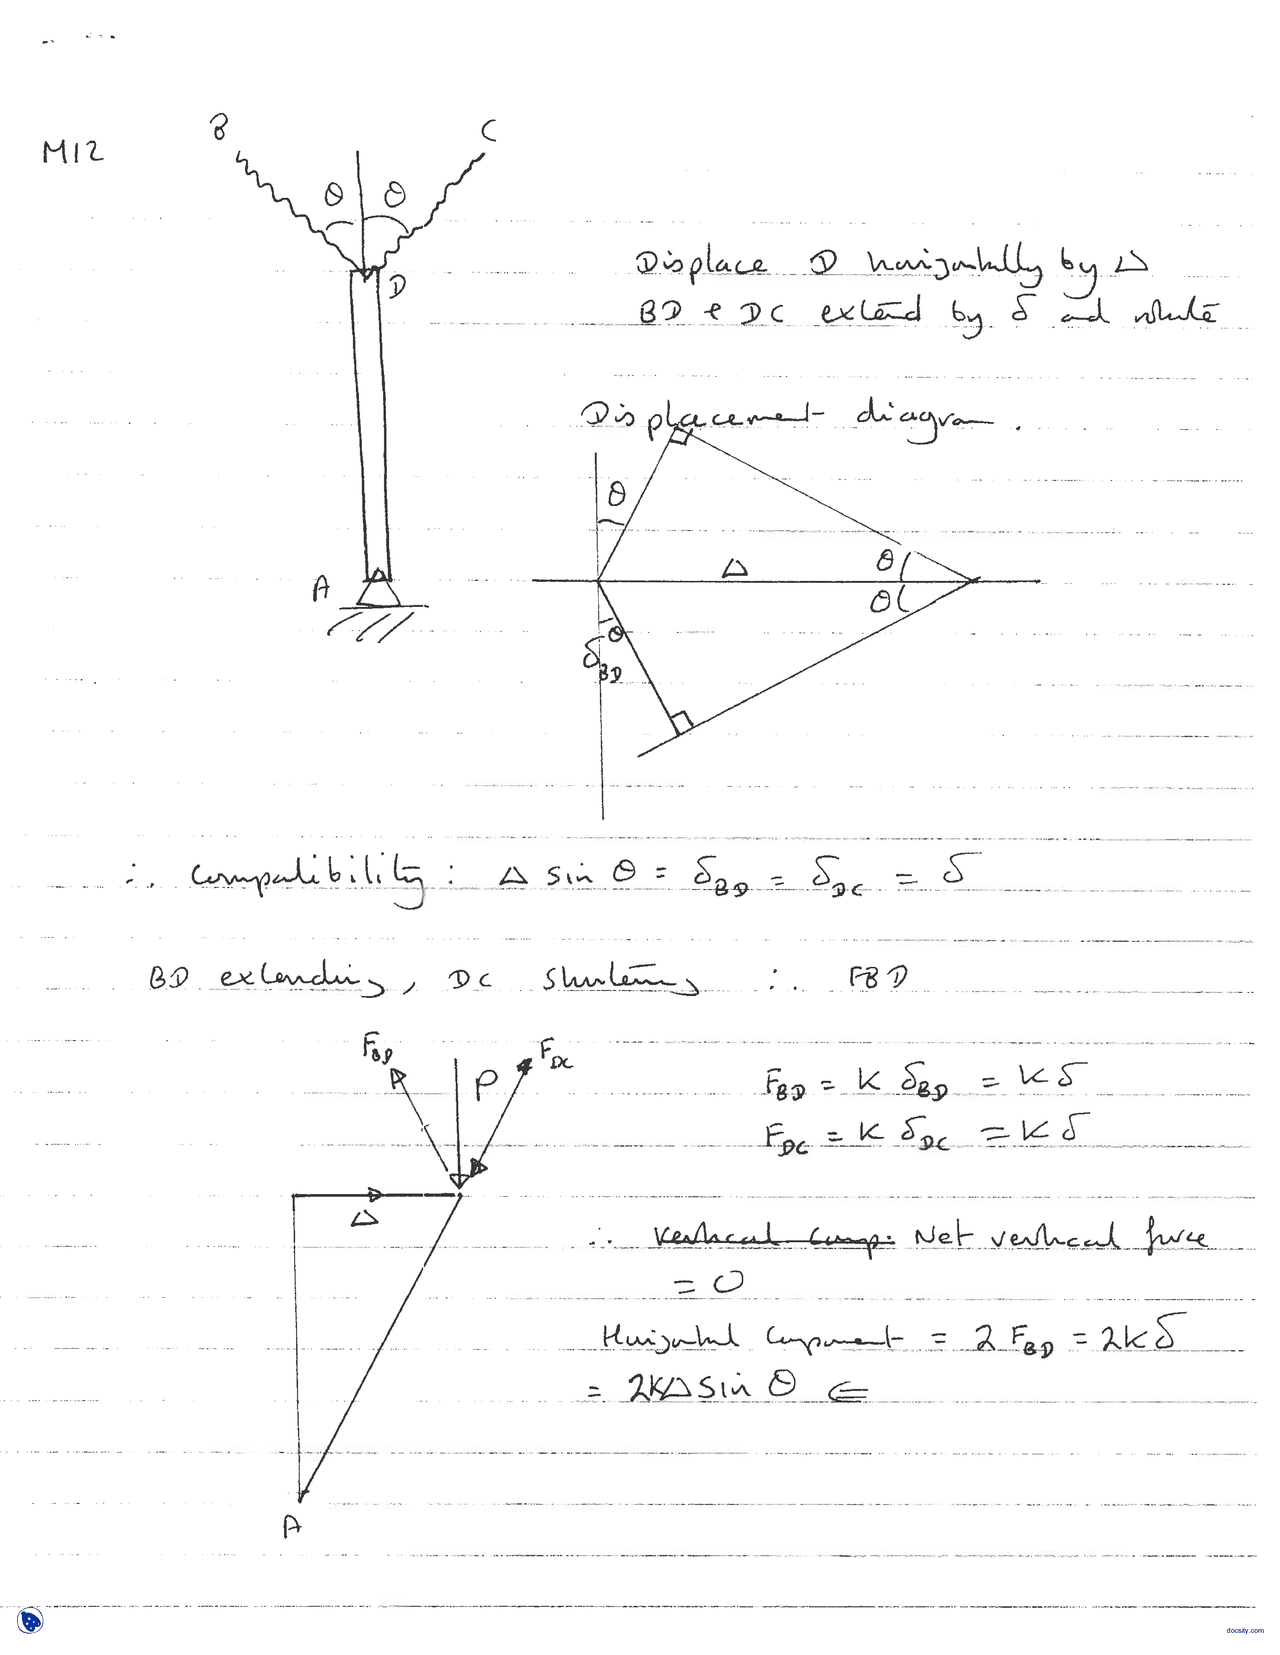 M12
B
C
θ θ
D
A
Displace D horizontally by Δ
BD & DC extend by δ and rotate
Displacement diagram.
θ
Δ
θ
θ
θ
δBD
∴ Compatibility: Δ sin θ = δBD = δDC = δ
BD extending, DC shortening ∴ FBD
FBD
P
FDC
Δ
A
FBD = K δBD = Kδ
FDC = K δDC = Kδ
∴ Vertical comp. Net vertical force
= 0
Horizontal component = 2 FBD = 2Kδ
= 2KΔ sin θ ⇐
docsity.com